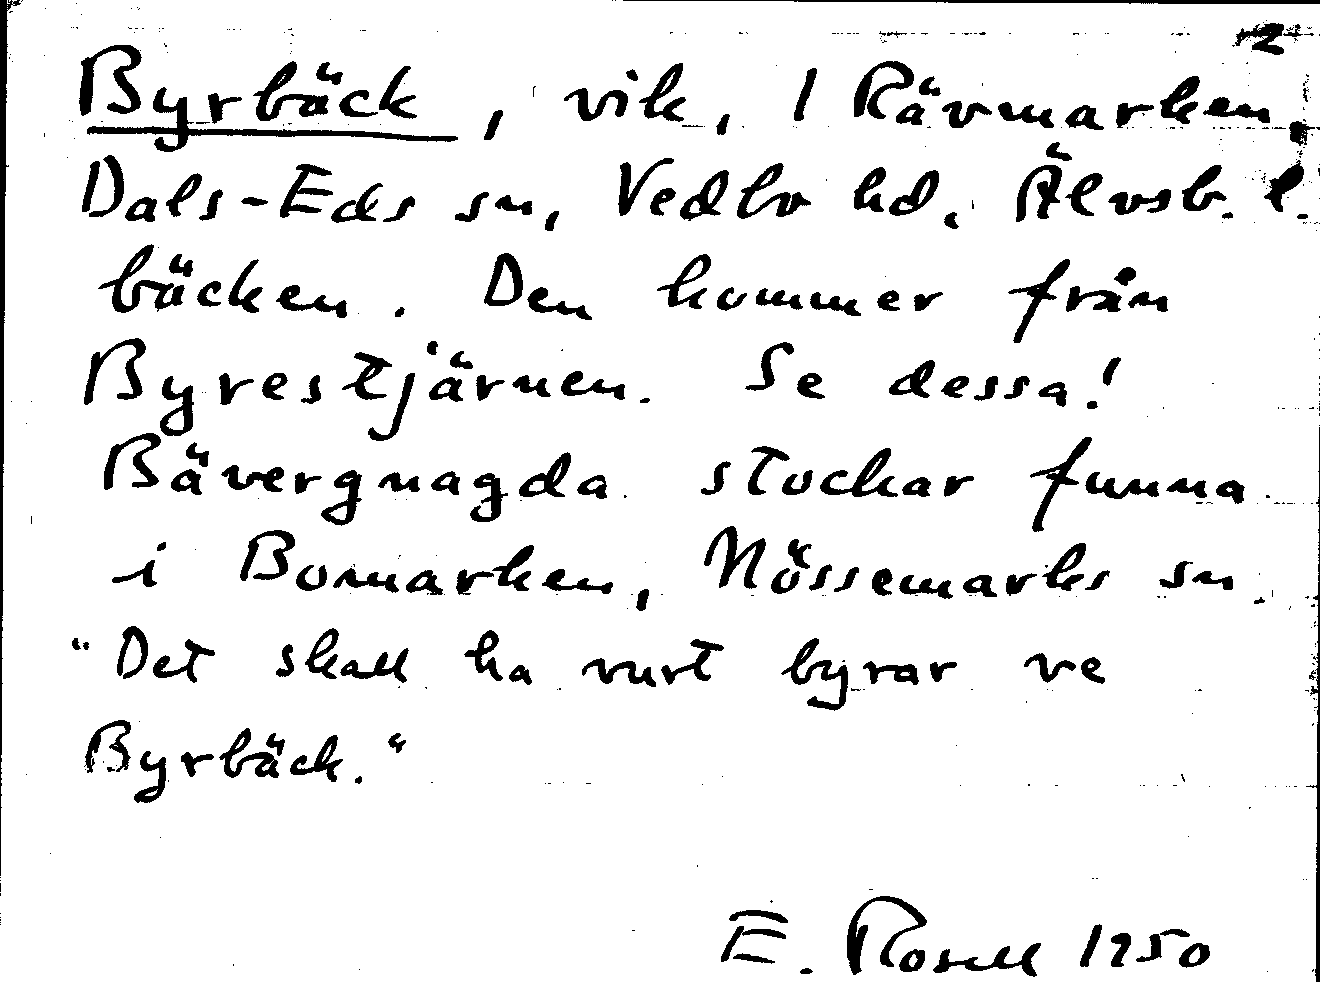 2
Byrbäck, vik, 1 Rävmarken,
Dals-Eds sn, Vedbo hd. Älvsb. l.
bäcken. Den kommer från
Byrestjärnen. Se dessa!
Bävergnagda stockar funna
i Bomarken, Nössemarks sn.
"Det skall ha vurt byrar ve
Byrbäck."
E. Rosell 1950